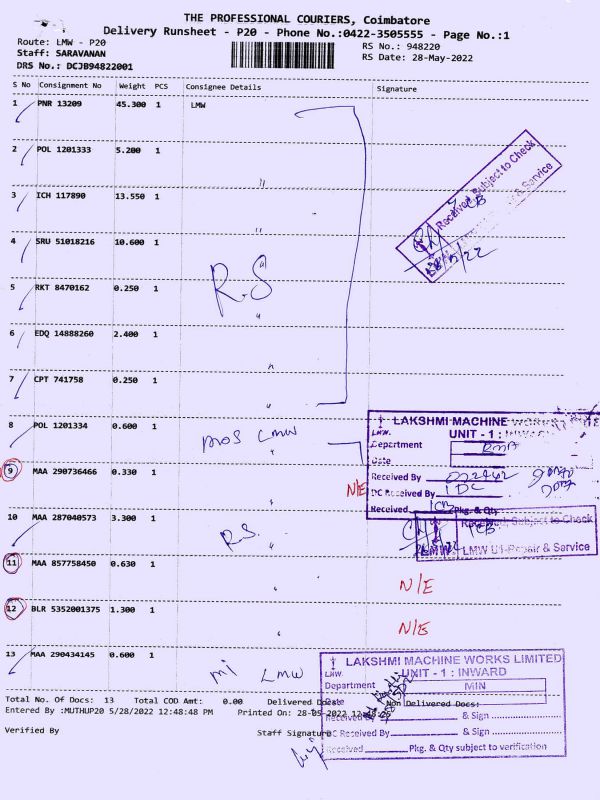 THE PROFESSIONAL COURIERS, Coimbatore
Delivery Runsheet - P20 - Phone No.:0422-3505555 - Page No.:1
Route: LMW - P20
Staff: SARAVANAN
DRS No.: DCJB94822001
RS No.: 948220
RS Date: 28-May-2022
S No Consignment No Weight PCS Consignee Details Signature
1 PNR 13209 45.300 1 LMW
2 POL 1201333 5.200 1
"
3 ICH 117890 13.550 1
"
4 SRU 51018216 10.600 1
"
R.S
5 RKT 8470162 0.250 1
"
6 EDQ 14888260 2.400 1
"
7 CPT 741758 0.250 1
"
Received Subject to Check
& Service
8 POL 1201334 0.600 1
LMW
"
9 MAA 290736466 0.330 1
N/E
10 MAA 287040573 3.300 1
R.S.
"
11 MAA 857758450 0.630 1
N/E
12 BLR 5352001375 1.300 1
N/E
13 MAA 290434145 0.600 1
LMW
LAKSHMI MACHINE WORKS
LMW. UNIT - 1 : INWARD
Department
Date
Received By
DC Received By
Received Pkg. & Qty
Received Subject to Check
LMW U1-Repair & Service
LAKSHMI MACHINE WORKS LIMITED
LMW. UNIT - 1 : INWARD
Department MIN
Date
Received By & Sign
DC Received By & Sign
Received Pkg. & Qty subject to verification
Total No. Of Docs: 13 Total COD Amt: 0.00 Delivered Docs: Non Delivered Docs:
Entered By :MUTHUP20 5/28/2022 12:48:48 PM Printed On: 28-05-2022
Verified By Staff Signature